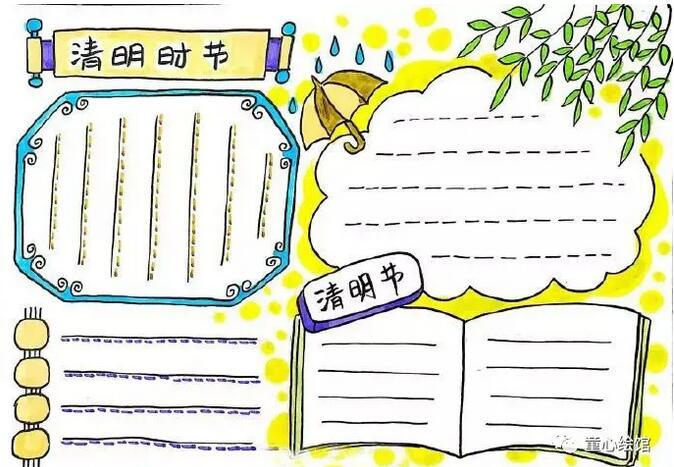 清明时节
清明节
童心绘馆